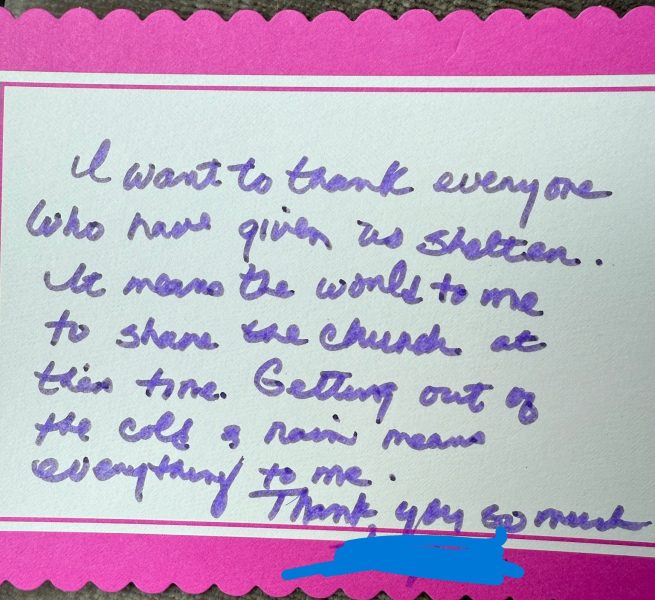 I want to thank everyone
who have given us shelter.
It means the world to me
to share the church at
this time. Getting out of
the cold & rain means
everything to me.
Thank you so much